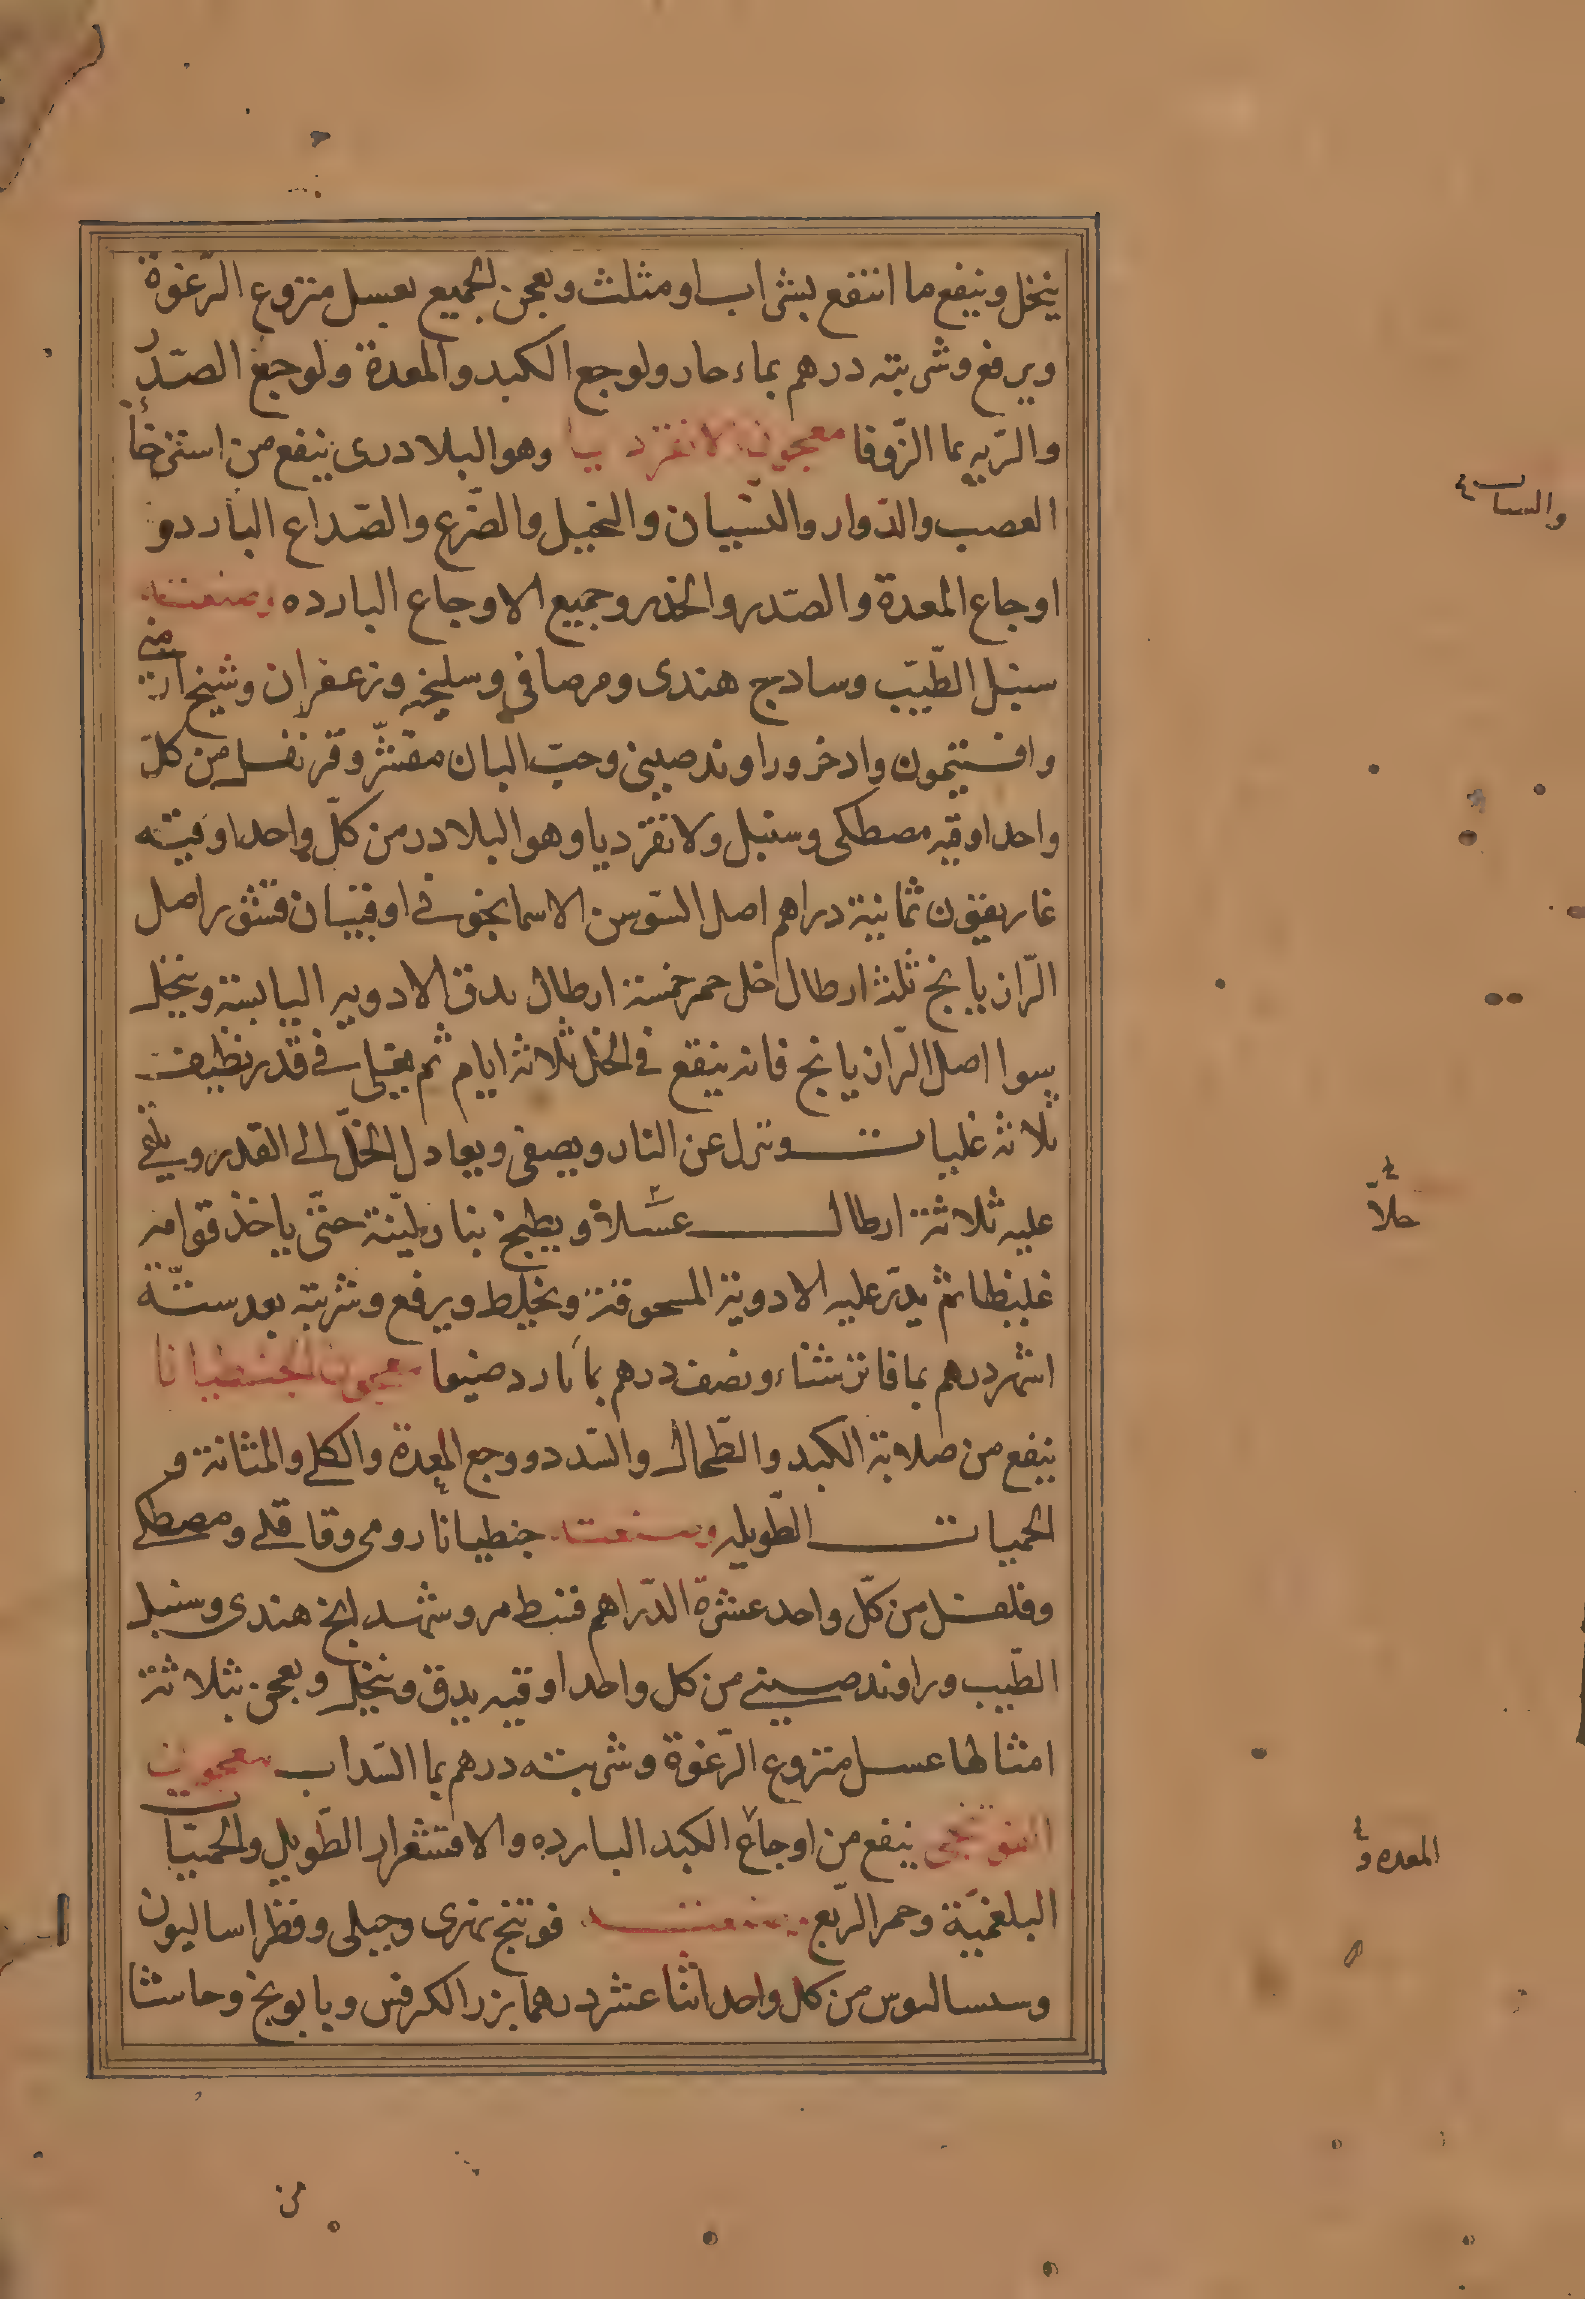 ينخل وينفع ما انتفع بشراب او مثلث ويعجن الجميع بعسل منزوع الرّغوة
ويرفع وشربته درهم بماء حار ولوجع الكبد والمعدة ولوجع الصّدر
والرّيه بما الزّوفا معجون الانقرديا وهو البلادرى ينفع من استرخأ
العصب والدّوار والنّسيان والصّرع والصّداع البارد و
اوجاع المعدة والصّدر والخدر وجميع الاوجاع البارده وصنعته
سنبل الطّيّب وسادج هندى ومر صافى وسليخه وزعفران وشيخ ارمنى
وافستيمون وادخر وراوند صينى وحبّ البان مقشّر وقرنفل من كلّ
واحد اوقيه مصطكى وسنبل ولانقرديا وهو البلادر من كلّ واحد اوقيته
غاريقون ثمانية دراهم اصل السّوسن الاسمانجونى اوقيتان قشور اصل
الرّازيانج ثلثة ارطال خل خمر خمسة ارطال يدق الادويه اليابسة وينخل
سوا اصل الرّازيانج فانه ينقع فى الخل ثلاثة ايام ثم يغلى فى قدر نظيف
ثلاثة غليات وتنزل عن النار ويصفى ويعاد الخلّ الى القدر ويلقى
عليه ثلاثة ارطال عسلاً ويطبخ بنار ليّنة حتّى ياخذ قوامه
غليظا ثم يدرّ عليه الادوية المسحوقة ويخلط ويرفع وشربته بعد ستّة
اشهر درهم بما فاتر شتاء ونصف درهم بما بارد صيفا معجون الجنطيانا
ينفع من صلابة الكبد والطّحال والسّدد ووجع المعدة والكلى والمثانة و
الحميات الطّويله وصنعته جنطيانا رومى وقاقلى ومصطكى
وفلفل من كلّ واحد عشرة الدّراهم قسط مر وشهدانج هندى وسنبل
الطّيب وراوند صينى من كل واحد اوقيه يدق وينخل ويعجن بثلاثة
امثالها عسل منزوع الرّغوة وشربته درهم بما السّداب معجون
الفوتنجى ينفع من اوجاع الكبد البارده والاقشعرار الطّويل والحميّات
البلغميّة وحمر الرّبع وصنعته فوتنج نهرى وجبلى وفطراساليون
وسساليوس من كل واحد اثنا عشر درهما بزر الكرفس وبابونج وحاشا
حلاّ
المعده و